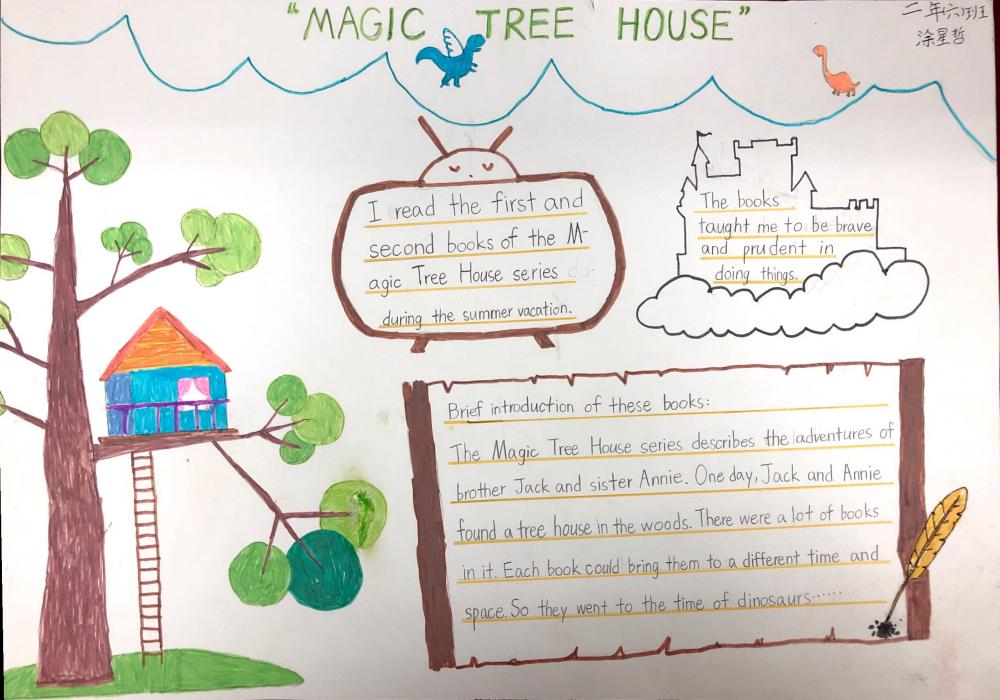 “MAGIC TREE HOUSE”
二年六班
涂星哲
I read the first and
second books of the M-
agic Tree House series du-
during the summer vacation.
The books
taught me to be brave
and prudent in
doing things.
Brief introduction of these books:
The Magic Tree House series describes the adventures of
brother Jack and sister Annie. One day, Jack and Annie
found a tree house in the woods. There were a lot of books
in it. Each book could bring them to a different time and
space. So they went to the time of dinosaurs······